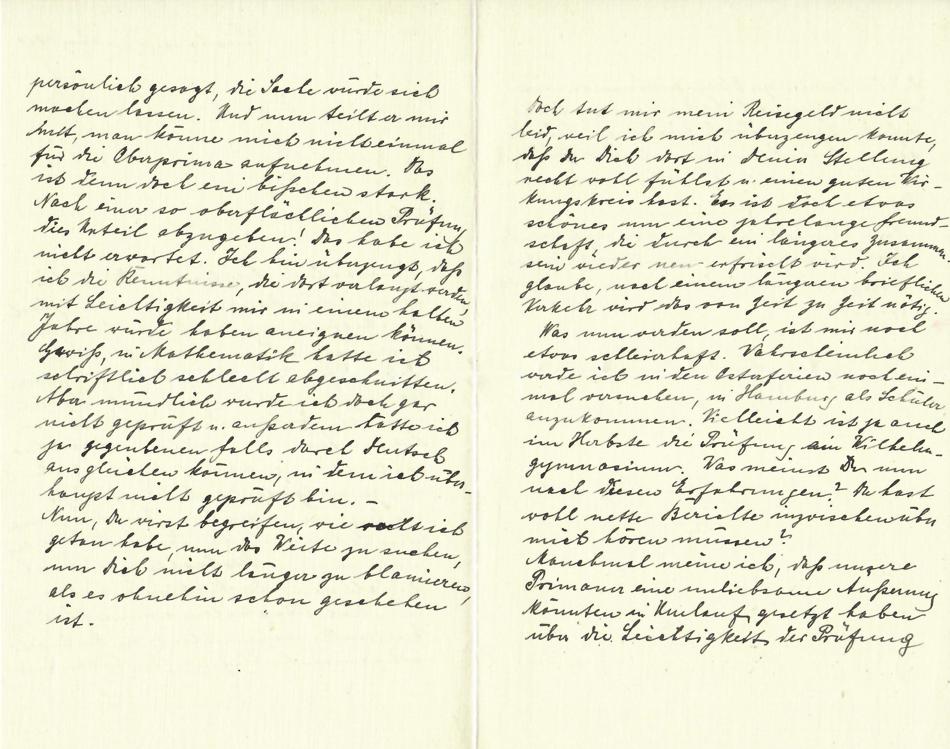 persönlich gesagt, die Sache würde sich
machen lassen. Und nun teilt er mir
mit, man könne mich nicht einmal
für die Oberprima aufnehmen. Das
ist denn doch ein bißchen stark.
Nach einer so oberflächlichen Prüfung
dies Urteil abzugeben! Das habe ich
nicht erwartet. Ich bin überzeugt, daß
ich die Kenntnisse, die dort verlangt werden,
mit Leichtigkeit mir in einem halben
Jahre würde haben aneignen können.
Gewiß, in Mathematik hatte ich
schriftlich schlecht abgeschnitten.
Aber mündlich wurde ich doch gar
nicht geprüft u. außerdem hätte ich
ja gegebenen falls durch Deutsch
ausgleichen können, in dem ich über-
haupt nicht geprüft bin. –
Nun, Du wirst begreifen, wie recht ich
getan habe, nun das Weite zu suchen,
um Dich nicht länger zu blamieren,
als es ohnehin schon geschehen
ist.
Doch tut mir mein Reisegeld nicht
leid, weil ich mich überzeugen konnte,
daß du Dich dort in Deiner Stellung
recht wohl fühlst u. einen guten Wir-
kungskreis hast. Es ist doch etwas
schönes um eine jahrelange Freund-
schaft, die durch ein längeres Zusammen-
sein wieder neu erfrischt wird. Ich
glaube, nach einem längeren brieflichen
Verkehr wird das von Zeit zu Zeit nötig.
Was nun werden soll, ist mir noch
etwas schleierhaft. Wahrscheinlich
werde ich in den Osterferien noch ein-
mal versuchen, in Hamburg als Schüler
anzukommen. Vielleicht ist ja auch
im Herbste die Prüfung am Wilhelm-
gymnasium. Was meinst Du nun
nach diesen Erfahrungen? Du hast
wohl nette Berichte inzwischen über
mich hören müssen?
Manchmal meine ich, daß unsere
Primaner eine unliebsame Äußerung
könnten in Umlauf gesetzt haben
über die Leichtigkeit der Prüfung